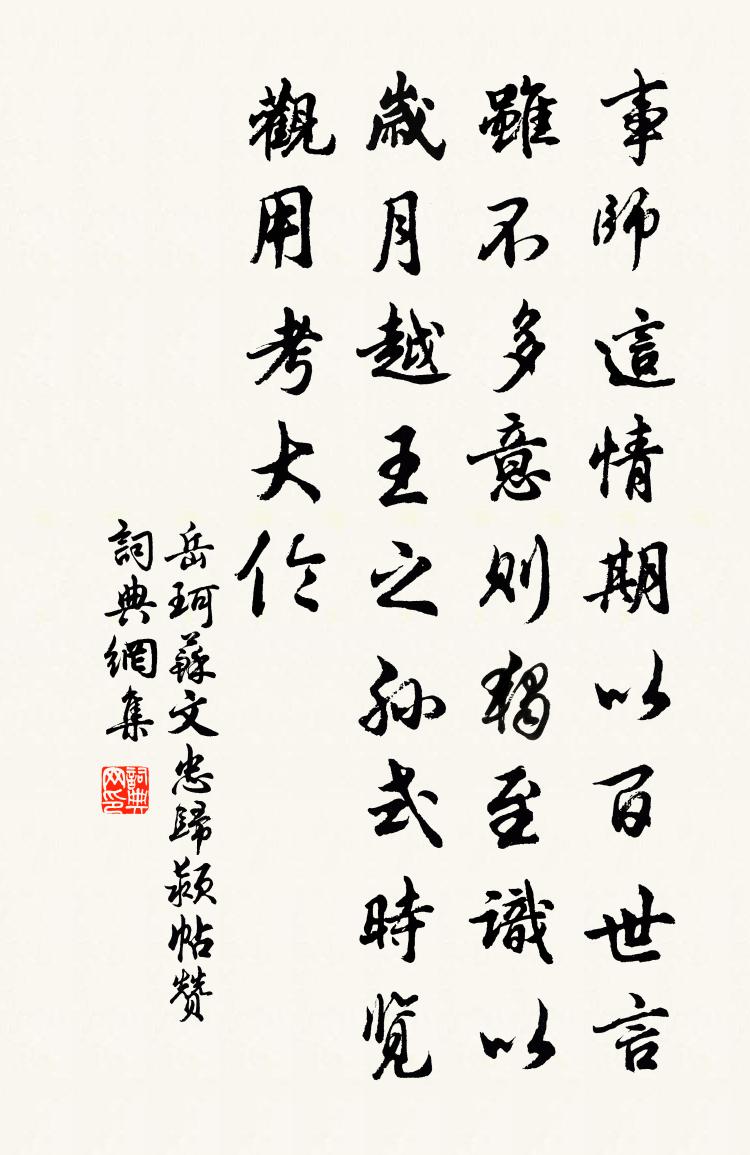 事師這情期以百世言
雖不多意則獨至識以
歲月越王之孫式時覽
觀用考大伱
岳珂蘇文忠歸潁帖贊
詞典網集
詞典网印